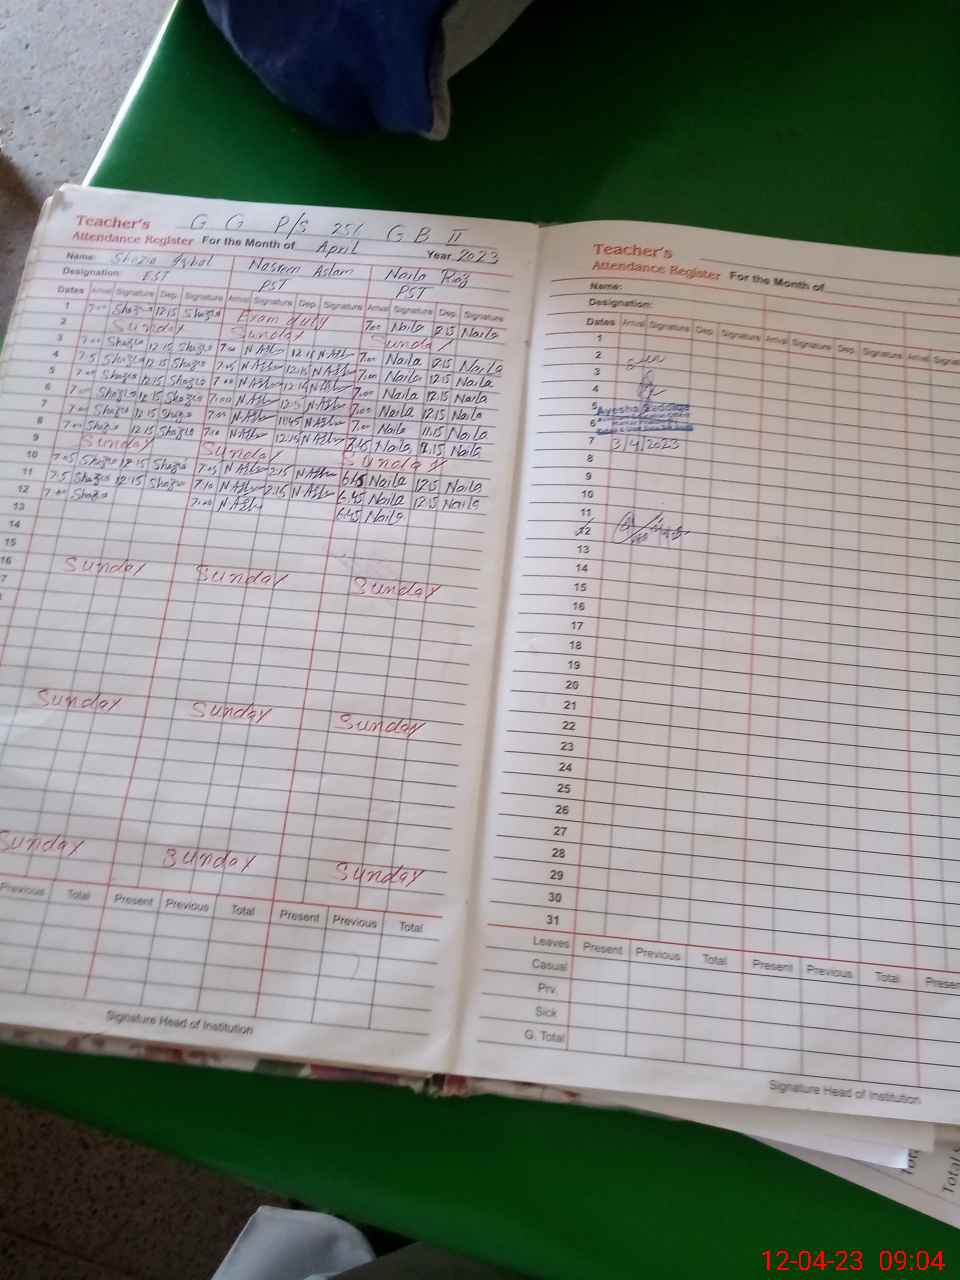 Teacher's G G P/S 251 G B II
Attendance Register For the Month of April Year 2023
Name: Shazia Iqbal Nasreen Aslam Naila Riaz
Designation: EST PST PST
Dates Arrival Signature Dep. Signature Arrival Signature Dep. Signature Arrival Signature Dep. Signature
1 7.00 Shazia 12.15 Shazia Exam duty 7.00 Naila 12.15 Naila
2 Sunday Sunday Sunday
3 7.00 Shazia 12.15 Shazia 7.00 12.15 7.00 Naila 12.15 Naila
4 7.5 Shazia 12.15 Shazia 7.05 12.15 7.00 Naila 12.15 Naila
5 7.00 Shazia 12.15 Shazia 7.00 12.15 7.00 Naila 12.15 Naila
6 7.00 Shazia 12.15 Shazia 7.00 12.15 7.00 Naila 12.15 Naila
7 7.00 Shazia 12.15 Shazia 7.00 11.45 7.00 Naila 11.15 Naila
8 7.00 Shazia 12.15 Shazia 7.10 12.15 6.45 Naila 12.15 Naila
9 Sunday Sunday Sunday
10 7.05 Shazia 12.15 Shazia 7.05 12.15 6.45 Naila 12.15 Naila
11 7.5 Shazia 12.15 Shazia 7.10 12.15 6.45 Naila 12.15 Naila
12 7.00 Shazia 7.00 6.45 Naila
13
14
15
16 Sunday Sunday Sunday
7
Sunday Sunday Sunday
Sunday Sunday Sunday
Previous Total Present Previous Total Present Previous Total
Signature Head of Institution
Teacher's
Attendance Register For the Month of
Name:
Designation:
Dates Arrival Signature Dep. Signature Arrival Signature Dep. Signature Arrival
1
2
3
4
5 Ayesha
6
7 3/4/2023
8
9
10
11
12
13
14
15
16
17
18
19
20
21
22
23
24
25
26
27
28
29
30
31
Leaves Present Previous Total Present Previous Total Present
Casual
Prv.
Sick
G. Total
Signature Head of Institution
12-04-23 09:04